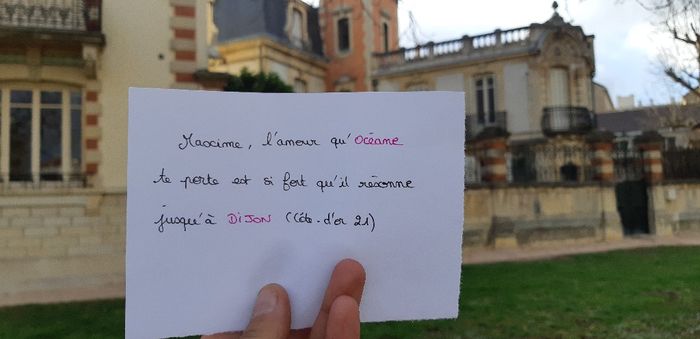 Maxime, l'amour qu'Océane
te porte est si fort qu'il résonne
jusqu'à DIJON (Côte-d'or 21)